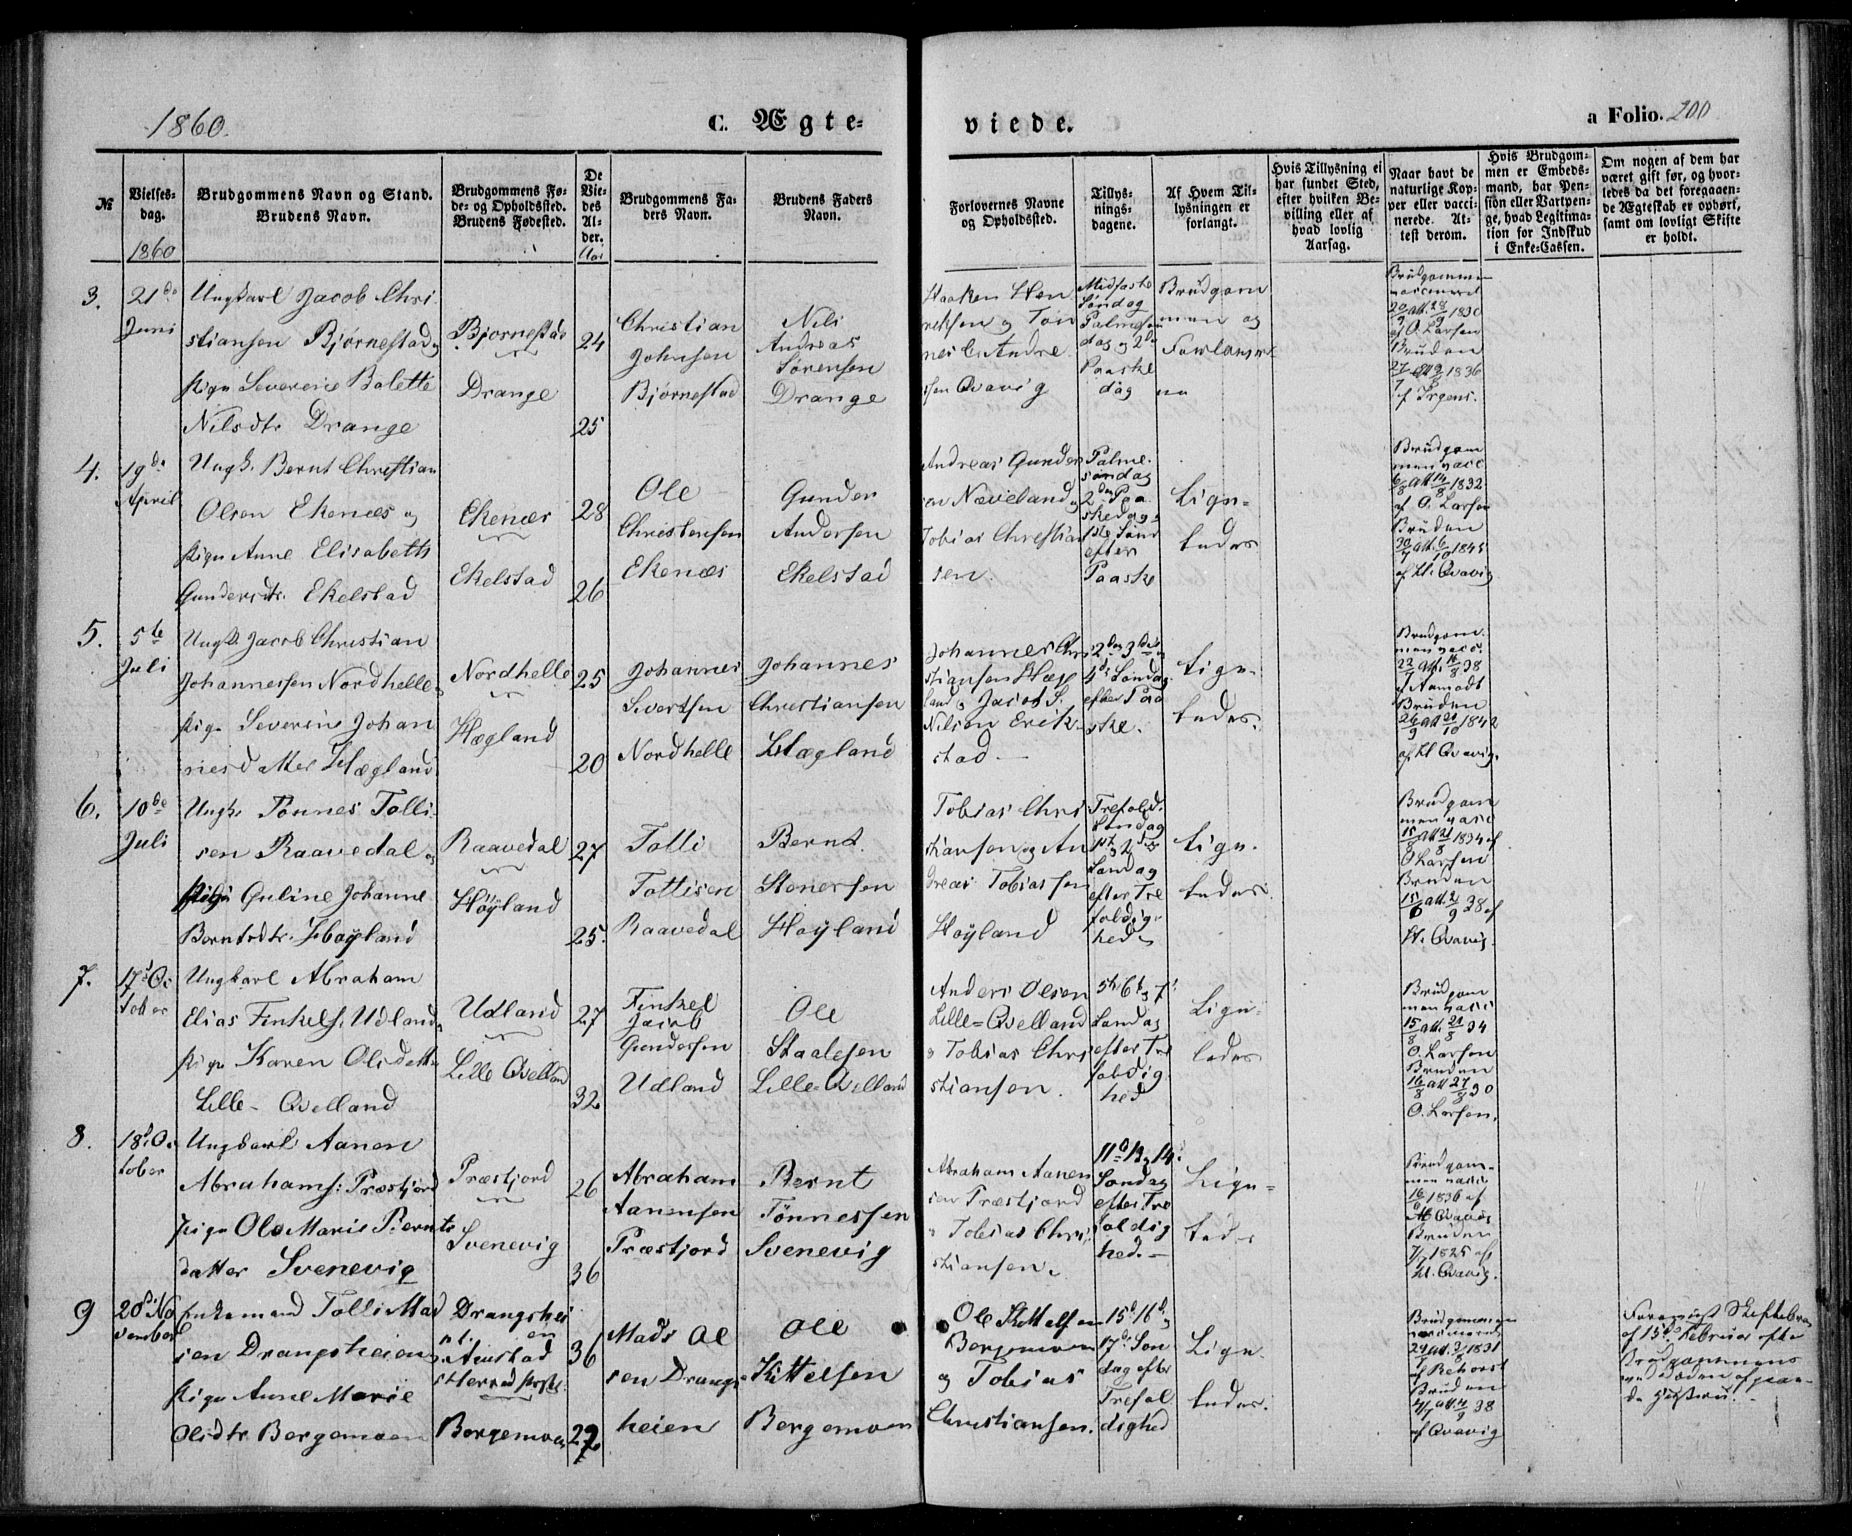 1860.
C. Ægte-
viede.
a Folio. 200
№
Vielses-
dag.
1860
Brudgommens Navn og Stand.
Brudens Navn.
Brudgommens Fø-
de- og Opholdssted.
Brudens Fødested.
De
Vie-
des
Al-
der.
Aar
Brudgommens Fa-
ders Navn.
Brudens Faders
Navn.
Forlovernes Navne
og Opholdssted.
Tillys-
nings-
dagene.
Af Hvem Til-
lysningen er
forlangt.
Hvis Tillysning ei
har fundet Sted,
efter hvilken Be-
villing eller af
hvad lovlig
Aarsag.
Naar havt de
naturlige Kop-
per eller vacci-
nerede. At-
test derom.
Hvis Brudgom-
men er Embeds-
mand, har Pen-
sion eller Vartpen-
ge, hvad Legitima-
tion for Indskud
i Enke-Cassen.
Om nogen af dem har
været gift før, og hvor-
ledes da det foregaaen-
de Ægteskab er ophørt,
samt om lovligt Skifte
er holdt.
3.
21de
Juni
Ungkarl Jacob Chri
stiansen Bjørnestad og
Pige Severine Bolette
Nilsdtr Drange
Bjornestad
Drange
24
25
Christian
Johnsen
Bjørnestad
Nils
Andreas
Sørensen
Drange
Haaken Hen
riksen og Tøn
nes C. Andre
sen Qvavig
Midfaste
Søndag
Palmesøn
dag og 2den
Paaske
dag
Brudgom
men og
Forlover
ne
Brudgommen
vaccineret
29/9 att 28/9 1830
af O. Larsen
Bruden
27/7 att 9/8 1836
af Irgens.
4.
19de
April
Ungk. Bernt Christian
Olsen Ekenæs og
Pige Anne Elisabeth
Gundersdtr. Ekelstad
Ekenæs
Ekelstad
28
26
Ole
Christensen
Ekenæs
Gunder
Andersen
Ekelstad
Andreas Gunder
sen Næveland og
Tobias Christian
sen.
Palme
søndag
2den Paa
skedag og
1ste Sønd
efter
Paaske
Lige-
ledes
Brudgom
men vacc
6/8 att 14/8 1832
af O. Larsen
Bruden
30/7 att. 6/10 1845
af H. Qvavig
5.
5te
Juli
Ungk Jacob Christian
Johannessen Nordhelle og
Pige Severine Johan
nesdatter Hægland
Nordhelle
Hægland
25
20
Johannes
Sivertsen
Nordhelle
Johannes
Christiansen
Hægland
Johannes Chri
stiansen Hæg
land og Jacob S.
Nilsen Erik-
stad
2den 3die og
4de Søndag
efter Paa
ske.
Lige-
ledes.
Brudgom
men vacc.
22/7 att. 14/8 38
af Aamodt
Bruden
26/9 att 20/10 1842
af H Qvavig.
6.
10de
Juli
Ungk. Tønnes Tolli
sen Raavedal og
Pige Guline Johanne
Berntsdtr. Høyland
Raavedal
Høyland
27
25.
Tolli
Tollisen
Raavedal
Bernt
Stenersen
Høyland
Tobias Chri
stiansen og An
dreas Tobiassen
Høyland
Trefold.
Søndag
1ste og 2den
Søndag
efter Tre
foldig-
hed
Lige-
ledes.
Brudgom
men vacc
15/8 att 21/8 1834 af
O Larsen
Bruden
15/6 att. 2/9 38 af
H. Qvavig.
7.
17d Oc
tober
Ungkarl Abraham
Elias Finkels. Udland og
Pige Karen Olsdatt
Lille-Qvelland
Udland
Lille Qvelland
27
32
Finkel
Jacob
Gundersen
Udland
Ole
Staalesen
Lille-Qvelland
Anders Olsen
Lille-Qvelland
og Tobias Chri
stiansen.
5te 6te og 7de
Søndag
efter Tre
foldig
hed
Lige-
ledes
Brudgom
men vacc
15/8 att. 21/8 34
O. Larsen
Bruden
16/8 att 27/8 30
O. Larsen.
8.
18d Oc
tober
Ungkarl Aanen
Abrahams. Præstjord
Pige Ole Marie Bernts
datter Svenevig
Præstjord
Svenevig
26
36
Abraham
Aanensen
Præstjord
Bernt
Tønnessen
Svenevig
Abraham Aanen
sen Præstjord
og Tobias Chri
stiansen.
11te 13 og 14de
Søndag
efter Tre
foldig
hed.
Lige-
ledes
Brudgom-
men vacc
16/9 1836 af
H Qvavig
Bruden
7/7 1825 af
H. Qvavig.
9
20de No
vember
Enkemand Tolli Mad
sen Drangsheien og
Pige Anne Marie
Olsdtr Bergemoen
Drangshei
en
Bergemoen
36
22
Mads Ol
sen Drangs
heien
Ole
Kittelsen
Bergemoen
Ole Kittelsen
Bergemoen
og Tobias
Christiansen.
15de 16de og
17de Søn
dag efter
Trefol
dighed
Lige-
ledes.
Brudgommen
vaccineret
Bruden
af Qvavig
Forevist Skiftebrev
af 15de Februar efter
Brudgommens